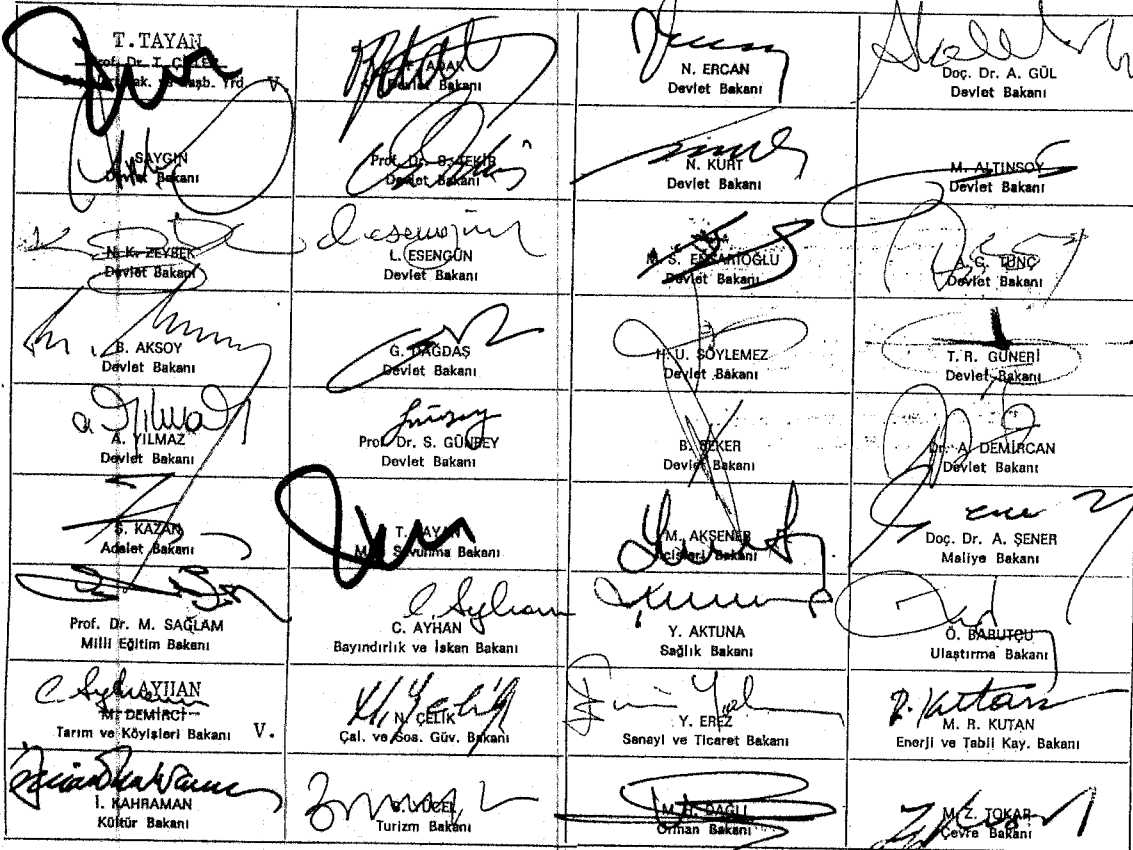 T. TAYAN
Prof. Dr. T. ÇİLLER
Bak. ve Başb. Yrd. V.
Devlet Bakanı
N. ERCAN
Devlet Bakanı
Doç. Dr. A. GÜL
Devlet Bakanı
SAYGIN
Devlet Bakanı
Prof. Dr. S. TEKİR
Devlet Bakanı
N. KURT
Devlet Bakanı
M. ALTINSOY
Devlet Bakanı
N. K. ZEYBEK
Devlet Bakanı
L. ESENGÜN
Devlet Bakanı
M. S. ENSARİOĞLU
Devlet Bakanı
A. G. TUNÇ
Devlet Bakanı
B. AKSOY
Devlet Bakanı
G. DAĞDAŞ
Devlet Bakanı
H. U. SÖYLEMEZ
Devlet Bakanı
T. R. GÜNERİ
Devlet Bakanı
A. YILMAZ
Devlet Bakanı
Prof. Dr. S. GÜNBEY
Devlet Bakanı
B. ŞEKER
Devlet Bakanı
Dr. A. DEMİRCAN
Devlet Bakanı
Ş. KAZAN
Adalet Bakanı
T. TAYAN
Milli Savunma Bakanı
M. AKŞENER
İçişleri Bakanı
Doç. Dr. A. ŞENER
Maliye Bakanı
Prof. Dr. M. SAĞLAM
Milli Eğitim Bakanı
C. AYHAN
Bayındırlık ve İskan Bakanı
Y. AKTUNA
Sağlık Bakanı
Ö. BARUTÇU
Ulaştırma Bakanı
C. AYHAN
M. DEMİRCİ
Tarım ve Köyişleri Bakanı V.
N. ÇELİK
Çal. ve Sos. Güv. Bakanı
Y. EREZ
Sanayi ve Ticaret Bakanı
M. R. KUTAN
Enerji ve Tabii Kay. Bakanı
İ. KAHRAMAN
Kültür Bakanı
B. YÜCEL
Turizm Bakanı
M. H. DAĞLI
Orman Bakanı
M. Z. TOKAR
Çevre Bakanı